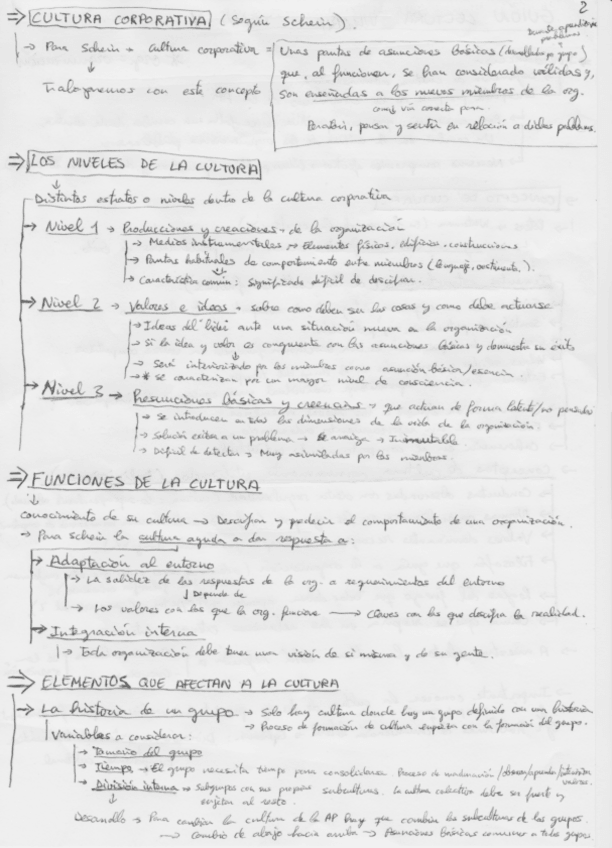 2
⇒ CULTURA CORPORATIVA (según Schein).
→ Para Schein → cultura corporativa =
Unas pautas de asunciones básicas (desarrolladas x grupo)
que, al funcionar, se han consideradas válidas y,
son enseñadas a los nuevos miembros de la org.
como vía correcta para:
Percibir, pensar y sentir en relación a dichos problemas.
Trabajaremos con este concepto
⇒ LOS NIVELES DE LA CULTURA
Distintos estratos o niveles dentro de la cultura corporativa
→ Nivel 1 → Producciones y creaciones → de la organización
→ Medios instrumentales → Elementos físicos, edificios, construcciones
→ Pautas habituales de comportamiento entre miembros (lenguaje, ).
→ Característica común: Significado difícil de descifrar.
→ Nivel 2 → Valores e ideas → sobre como deben ser las cosas y como debe actuarse
→ Ideas del "líder" ante una situación nueva a la organización
→ Si la idea y valor es congruente con las asunciones básicas y demuestra su éxito
→ Será interiorizado por los miembros como asunción básica/creencia
→ * se caracterizan por un mayor nivel de consciencia.
→ Nivel 3 → Presunciones básicas y creencias → que actúan de forma latente/no
→ Se introducen en todas las dimensiones de la vida de la organización
→ Solución exitosa a un problema → Se arraiga → Inmutable
→ Difícil de detectar → Muy asimiladas por los miembros.
⇒ FUNCIONES DE LA CULTURA
Conocimiento de su cultura → Descifrar y predecir el comportamiento de una organización.
→ Para Schein la cultura ayuda a dar respuesta a:
→ Adaptación al entorno
→ La solidez de las respuestas de la org. a requerimientos del entorno
↓ Depende de
→ Los valores con los que la org. funcione → Claves con las que descifra la realidad.
→ Integración interna
→ Toda organización debe tener una visión de si misma y de su gente.
⇒ ELEMENTOS QUE AFECTAN A LA CULTURA
→ La historia de un grupo → Solo hay cultura donde hay un grupo definido con una historia
→ Proceso de formación de cultura empieza con la formación del grupo.
Variables a considerar:
→ Tamaño del grupo
→ Tiempo → El grupo necesita tiempo para consolidarse. Proceso de maduración/
→ División interna → Subgrupos con sus propias subculturas. La cultura colectiva debe ser fuerte y
sujetar al resto.
Desarrollo → Para cambiar la cultura de la AP hay que cambiar las subculturas de los grupos.
→ Cambio de abajo hacia arriba → Asunciones básicas comunes a todos grupos.